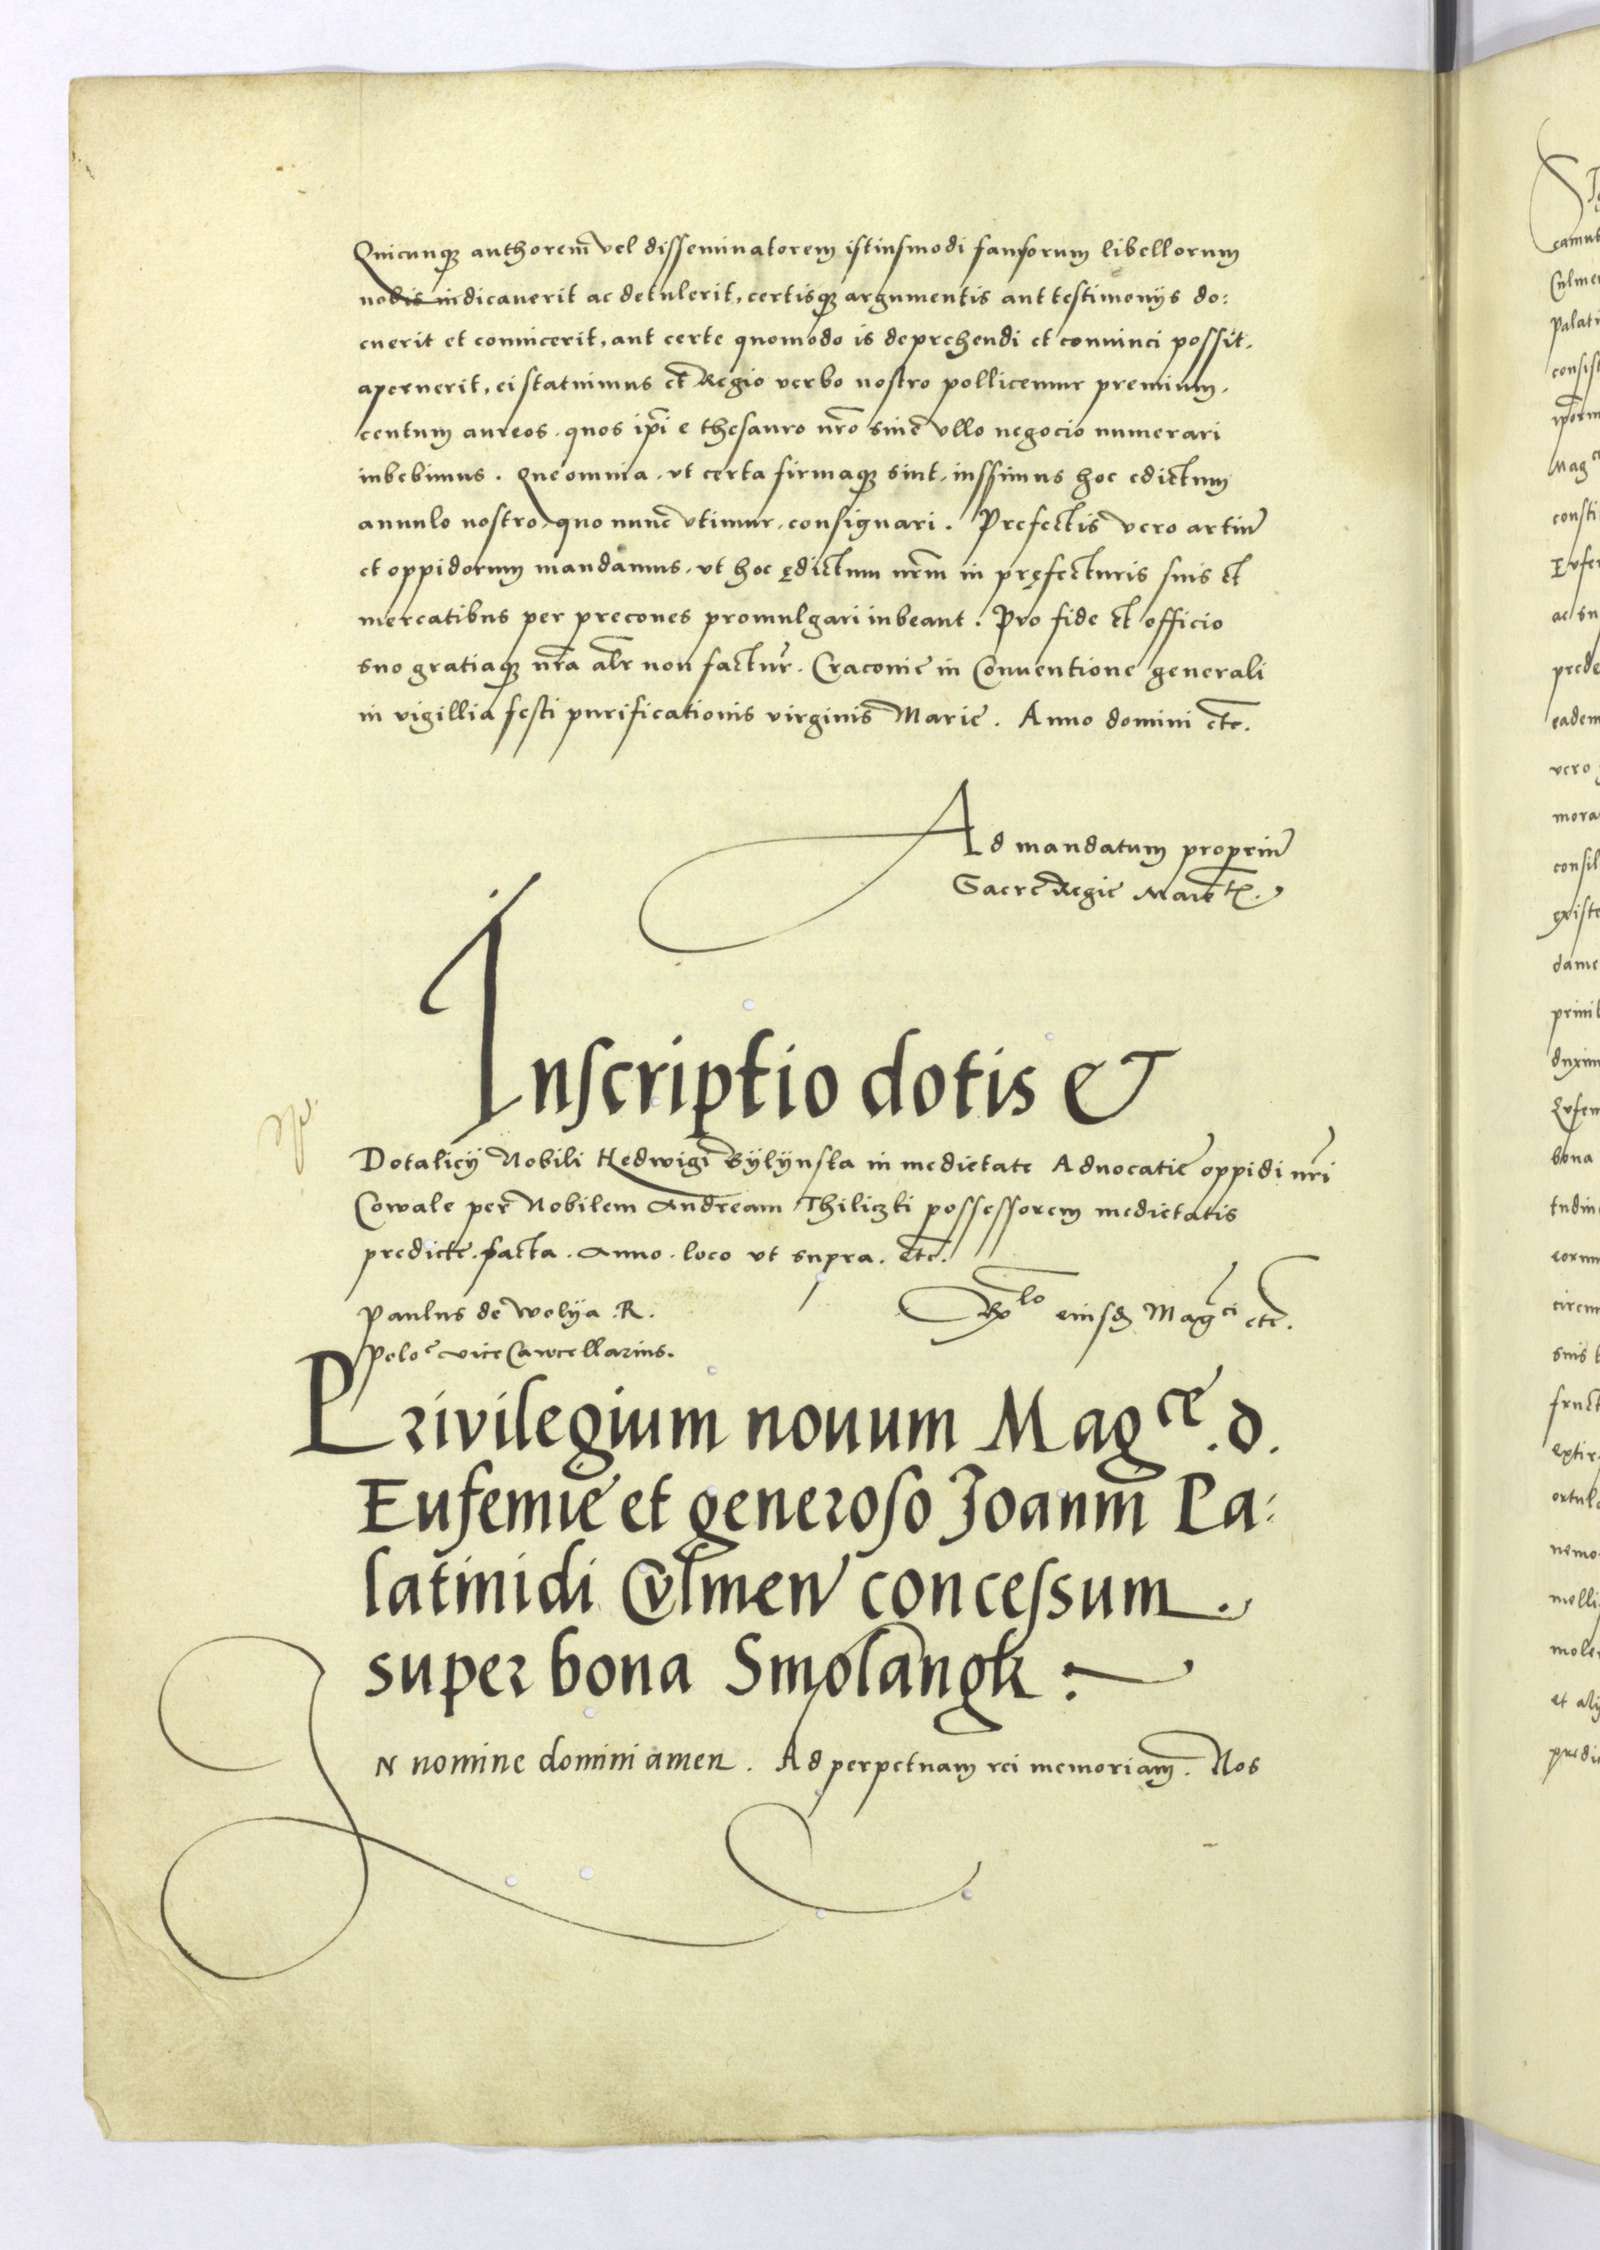 Quicunque authorem vel disseminatorem istiusmodi famosorum libellorum
nobis indicauerit ac detulerit, certisque argumentis aut testimonijs do:
cuerit et conuicerit, aut certe quomodo is deprehendi et conuinci possit,
aperuerit, ei statuimus et Regio verbo nostro pollicemur premium,
centum aureos, quos ipi e thesauro nro sine vllo negocio numerari
iubebimus. Que omnia, vt certa firmaque sint, iussimus hoc edictum
annulo nostro, quo nunc vtimur, consignari. Prefectis vero artium
et oppidorum mandamus, vt hoc ędictum nrm in pręfecturis suis et
mercatibus per precones promulgari iubeant. Pro fide et officio
suo gratiaque nra alr non factur. Craconie in Conuentione generali
in vigillia festi purificationis virginis Marie. Anno domini etc.
Ad mandatum proprium
Sacre Regie Maiets.
Inscriptio dotis &
Dotalicij Nobili Hedwigi Bylynska in medietate Aduocatie oppidi nri
Cowale per Nobilem Andream Thiliczki possessorem medietatis
predicte. facta. Anno. loco vt supra. etc.
Paulus de Wolija .R.
Rlo eiusd Magci etc.
Poloe vice Cancellarius.
Privilegium nouum Magce .d.
Eufemie et generoso Joanni Pa:
latinidi Culmen concessum
super bona Smolangk :
IN nomine domini amen. Ad perpetuam rei memoriam. Nos